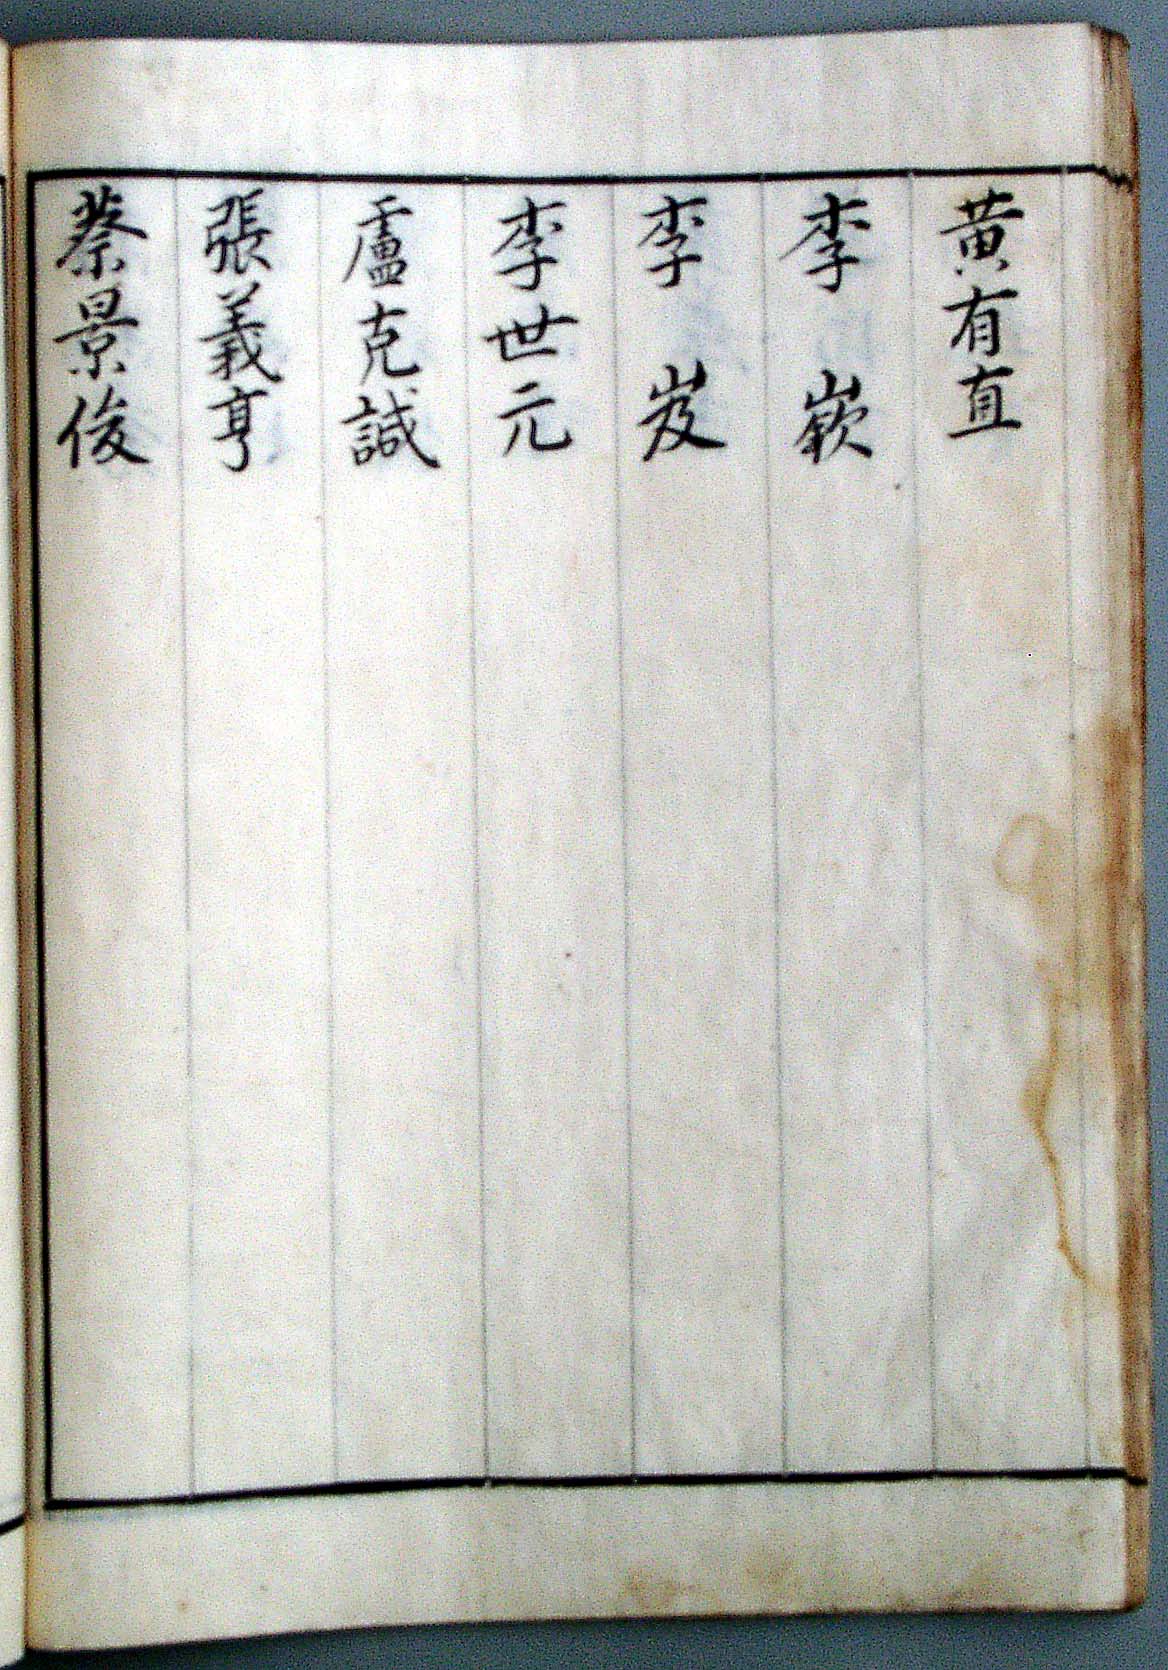 黃有直
李嶔
李岌
李世元
盧克誠
張義亨
蔡景俊